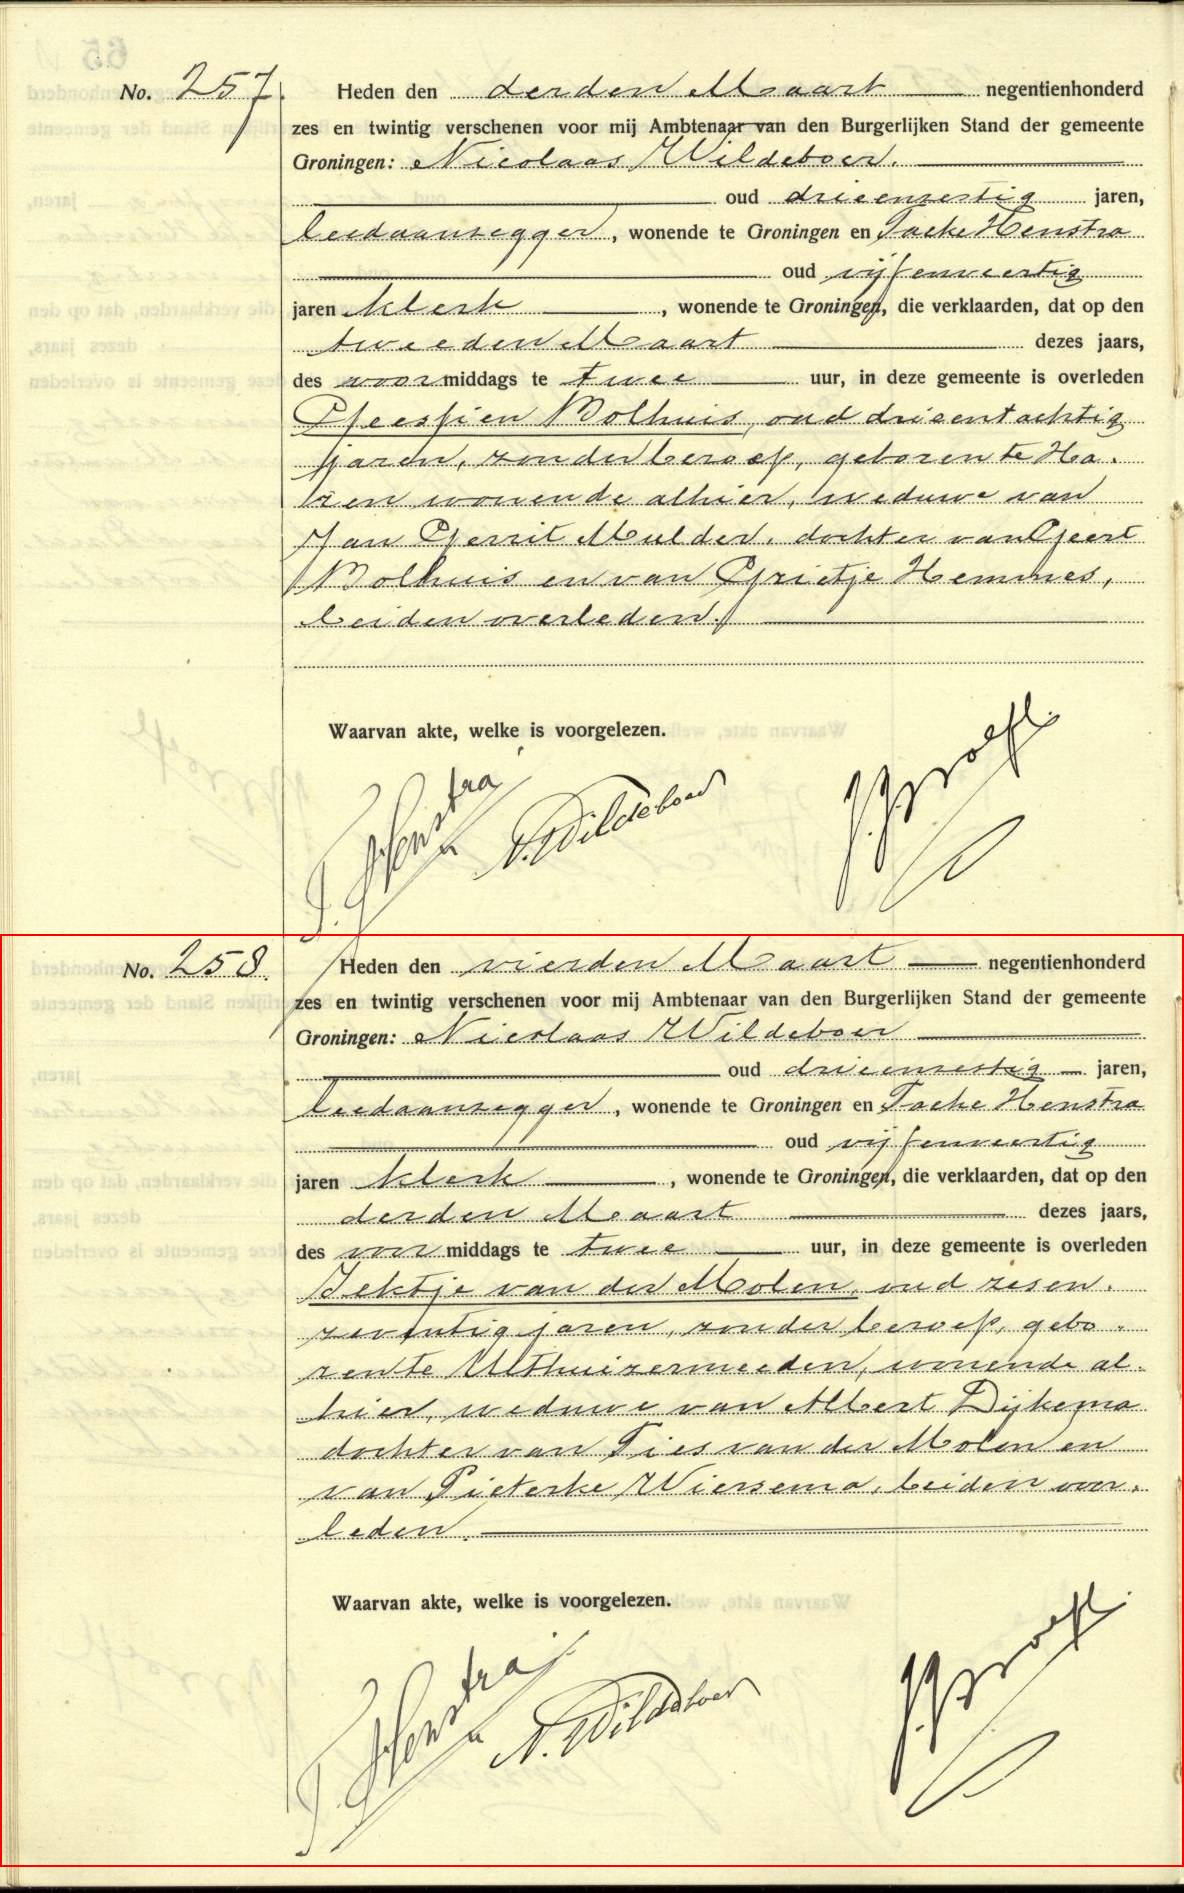 No. 257.
Heden den derden Maart negentienhonderd
zes en twintig verschenen voor mij Ambtenaar van den Burgerlijken Stand der gemeente
Groningen: Nicolaas Wildeboer.
oud drieenzestig jaren,
leedaanzegger, wonende te Groningen en Taeke Henstra
oud vijfenveertig
jaren klerk, wonende te Groningen, die verklaarden, dat op den
tweeden Maart dezes jaars,
des voormiddags te twee uur, in deze gemeente is overleden
Geessien Bolhuis, oud drieentachtig
jaren, zonder beroep, geboren te Ha.
ren wonende alhier, weduwe van
Jan Gerrit Mulder, dochter van Geert
Bolhuis en van Grietje Hemmes,
beiden overleden.
Waarvan akte, welke is voorgelezen.
T. Henstra
N. Wildeboer
No. 258.
Heden den vierden Maart negentienhonderd
zes en twintig verschenen voor mij Ambtenaar van den Burgerlijken Stand der gemeente
Groningen: Nicolaas Wildeboer
oud drieenzestig jaren,
leedaanzegger, wonende te Groningen en Taeke Henstra
oud vijfenveertig
jaren klerk, wonende te Groningen, die verklaarden, dat op den
derden Maart dezes jaars,
des voormiddags te twee uur, in deze gemeente is overleden
Jektje van der Molen, oud zesen.
zeventig jaren, zonder beroep, gebo.
ren te Uithuizermeeden, wonende al.
hier, weduwe van Albert Dijkema
dochter van Ties van der Molen en
van Pieterke Wiersema, beiden over.
leden.
Waarvan akte, welke is voorgelezen.
T. Henstra
N. Wildeboer